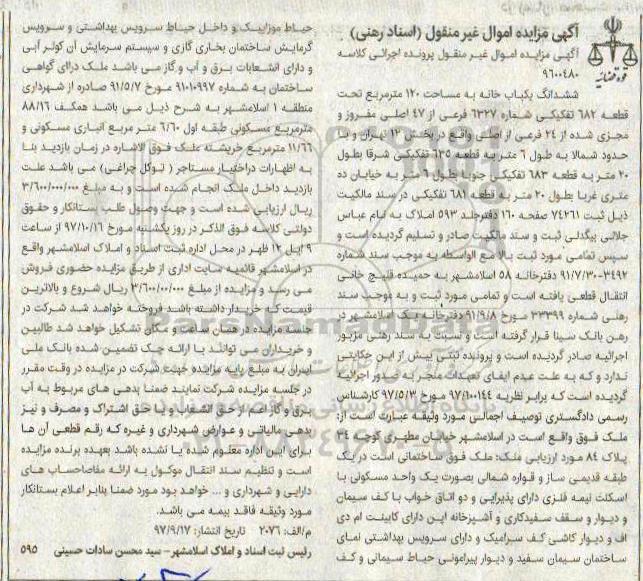 آگهی مزایده اموال غیر منقول (اسناد رهنی)
آگهی مزایده اموال غیر منقول پرونده اجرائی کلاسه
۹۶۰۰۴۸۰
ششدانگ یکباب خانه به مساحت ۱۲۰ مترمربع تحت
قطعه ۶۸۲ تفکیکی شماره ۶۳۲۷ فرعی از ۴۷ اصلی مفروز و
مجزی شده از ۲۴ فرعی از اصلی واقع در بخش ۱۲ تهران و با
حدود شمالا به طول ۶ متر به قطعه ۶۳۵ تفکیکی شرقا بطول
۲۰ متر به قطعه ۶۸۳ تفکیکی جنوبا بطول ۶ متر به خیابان ده
متری غربا بطول ۲۰ متر به قطعه ۶۸۱ تفکیکی در سند مالکیت
ذیل ثبت ۷۴۲۶۱ صفحه ۱۶۰ دفترجلد ۵۹۳ املاک به نام عباس
جلالی بیگدلی ثبت و سند مالکیت صادر و تسلیم گردیده است و
سپس تمامی مورد ثبت بالا مع الواسطه به موجب سند شماره
۳۴۹۲-۹۱/۷/۳۰ دفترخانه ۵۸ اسلامشهر به حمیده قلیچ خانی
انتقال قطعی یافته است و تمامی مورد ثبت و به موجب سند
رهنی شماره ۳۳۳۹۹ مورخ ۹۱/۹/۸ دفترخانه یک اسلامشهر در
رهن بانک سینا قرار گرفته است و نسبت به سند رهنی مزبور
اجرائیه صادر گردیده است و پرونده ثبتی بیش از این حکایتی
ندارد و که به علت عدم ایفای تعهدات منجر به صدور اجرائیه
گردیده است که برابر نظریه ۹۷/۱۰۰۱۴۴ مورخ ۹۷/۵/۳ کارشناس
رسمی دادگستری توصیف اجمالی مورد وثیقه عبارت است از:
ملک فوق واقع است در اسلامشهر خیابان مطهری کوچه ۳۴
پلاک ۸۴ مورد ارزیابی ملک: ملک فوق ساختمانی است در یک
طبقه قدیمی ساز و قواره شمالی بصورت یک واحد مسکونی با
اسکلت نیمه فلزی دارای پذیرایی و دو اتاق خواب با کف سیمان
و دیوار و سقف سفیدکاری و آشپزخانه اپن دارای کابینت ام دی
اف و دیوار کاشی کف سرامیک و دارای سرویس بهداشتی نمای
ساختمان سیمان سفید و دیوار پیرامونی حیاط سیمانی و کف
حیاط موزاییک و داخل حیاط سرویس بهداشتی و سرویس
گرمایش ساختمان بخاری گازی و سیستم سرمایش آن کولر آبی
و دارای انشعابات برق و آب و گاز می باشد ملک دراای گواهی
ساختمان به شماره ۹۱۰۱۰۹۹۷ مورخ ۹۱/۵/۷ صادره از شهرداری
منطقه ۱ اسلامشهر به شرح ذیل می باشد همکف ۸۸/۱۶
مترمربع مسکونی طبقه اول ۶/۶۰ متر مربع انباری مسکونی و
۱۱/۶۶ مترمربع خرپشته ملک فوق الاشاره در زمان بازدید بنا
به اظهارات دراختیار مستاجر ( توکل چراغی) می باشد علت
بازدید داخل ملک انجام شده است و به مبلغ ۳/۶۰۰/۰۰۰/۰۰۰
ریال ارزیابی شده است و جهت وصول طلب بستانکار و حقوق
دولتی کلاسه فوق الذکر در روز یکشنبه مورخ ۹۷/۱۰/۱۶ از ساعت
۹ الی ۱۲ ظهر در محل اداره ثبت اسناد و املاک اسلامشهر واقع
در اسلامشهر قائمیه سایت اداری از طریق مزایده حضوری فروش
می رسد و مزایده از مبلغ ۳/۶۰۰/۰۰/۰۰۰ ریال شروع و بالاترین
قیمت که خریدار داشته باشد فروخته خواهد شد شرکت در
جلسه مزایده در همان ساعت و مکان تشکیل خواهد شد طالبین
و خریداران می توانند با ارائه چک تضمین شده بانک ملی
ایران به مبلغ پایه مزایده جهت شرکت در مزایده در وقت مقرر
در جلسه مزایده شرکت نمایند ضمنا بدهی های مربوط به آب
برق و گاز اعم از حق انشعاب و یا حق اشتراک و مصرف و نیز
بدهی مالیاتی و عوارض شهرداری و غیره که رقم قطعی آن ها
برای این اداره معلوم شده یا نشده باشد بعهده برنده مزایده
است و تنظیم سند انتقال موکول به ارائه مفاصاحساب های
دارایی و شهرداری و ... خواهد بود مورد ضمنا بنابر اعلام بستانکار
مورد وثیقه فاقد بیمه می باشد.
م/الف: ۲۰۷۶ تاریخ انتشار: ۹۷/۹/۱۷
رئیس ثبت اسناد و املاک اسلامشهر – سید محسن سادات حسینی ۵۹۵